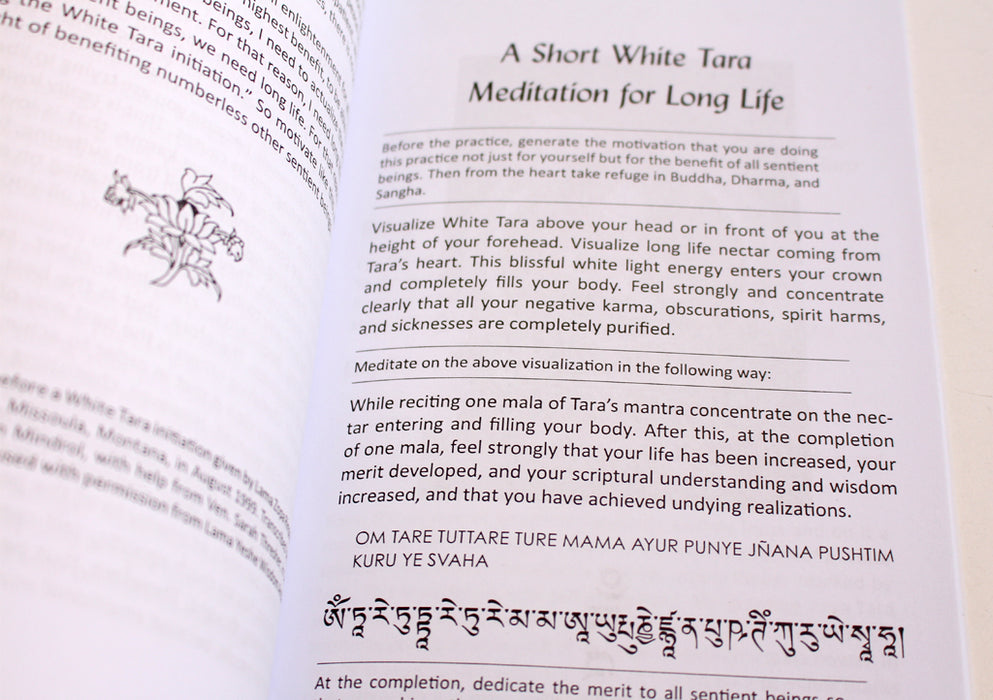 enlightenment,
highest benefit, to be
beings, I need to actualize
For that reason, I need
beings, we need long life. For
the White Tara initiation.” So motivate like
of benefiting numberless other sentient
a White Tara initiation given by Lama
Missoula, Montana, in August 1999.
Mindrol, with help from Ven. Sarah
with permission from Lama Yeshe
A Short White Tara
Meditation for Long Life
Before the practice, generate the motivation that you are doing
this practice not just for yourself but for the benefit of all sentient
beings. Then from the heart take refuge in Buddha, Dharma, and
Sangha.
Visualize White Tara above your head or in front of you at the
height of your forehead. Visualize long life nectar coming from
Tara’s heart. This blissful white light energy enters your crown
and completely fills your body. Feel strongly and concentrate
clearly that all your negative karma, obscurations, spirit harms,
and sicknesses are completely purified.
Meditate on the above visualization in the following way:
While reciting one mala of Tara’s mantra concentrate on the nec-
tar entering and filling your body. After this, at the completion
of one mala, feel strongly that your life has been increased, your
merit developed, and your scriptural understanding and wisdom
increased, and that you have achieved undying realizations.
OM TARE TUTTARE TURE MAMA AYUR PUNYE JÑANA PUSHTIM
KURU YE SVAHA
ཨོཾ་ཏཱ་རེ་ཏུ་ཏྟཱ་རེ་ཏུ་རེ་མ་མ་ཨཱ་ཡུཿཔུཎྱེ་ཛྙཱ་ན་པུཥྚིཾ་ཀུ་རུ་ཡེ་སྭཱ་ཧཱ།
At the completion, dedicate the merit to all sentient beings so